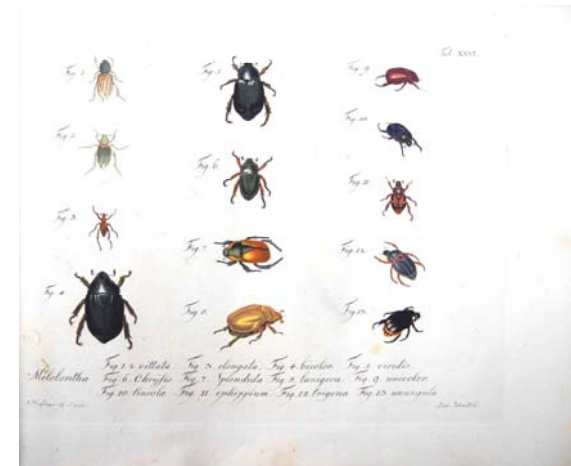 Tab. XXVI.
Fig. 1.
Fig. 2.
Fig. 3.
Fig. 4.
Fig. 5.
Fig. 6.
Fig. 7.
Fig. 8.
Fig. 9.
Fig. 10.
Fig. 11.
Fig. 12.
Fig. 13.
Fig. 1. 2. vittata. Fig. 3. elongata. Fig. 4. bicolor. Fig. 5. viridis.
Melolontha Fig. 6. Chrysis Fig. 7. Splendida Fig. 8. lanigera. Fig. 9. unicolor.
Fig. 10. lineola Fig. 11. ephippium. Fig. 12. trigona. Fig. 13.